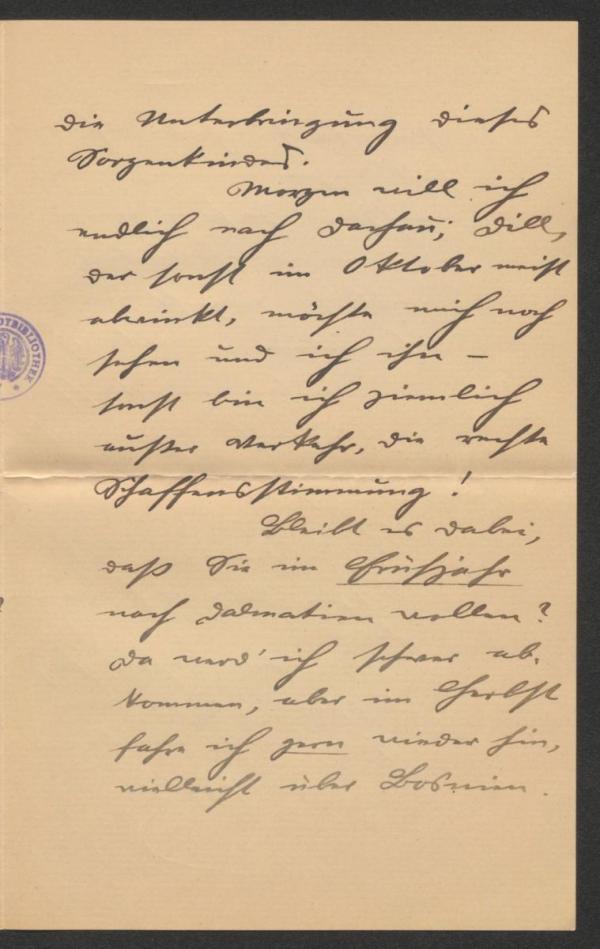 die Unterbringung dieses
Sorgenkindes.
Morgen will ich
endlich nach Dachau; Dill,
der sonst im Oktober meist
abwinkt, möchte mich noch
sehen und ich ihn –
sonst bin ich ziemlich
außer Verkehr, die rechte
Schaffensstimmung!
Bleibt es dabei,
daß Sie im Frühjahr
nach Dalmatien wollen?
Da werd' ich schwer ab-
kommen, aber im Herbst
fahre ich gern wieder hin,
vielleicht über Bosnien.
BIBLIOTHEK